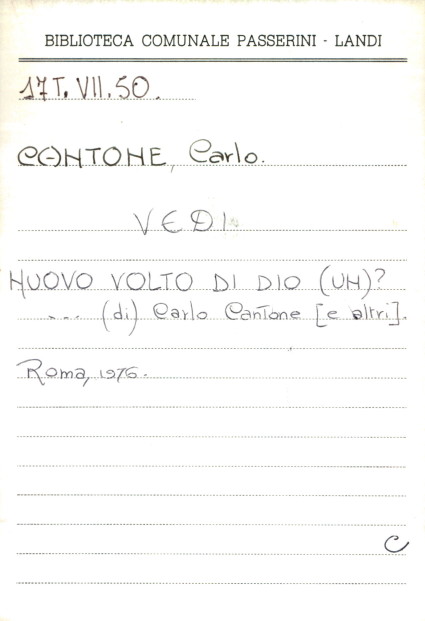 BIBLIOTECA COMUNALE PASSERINI - LANDI
17T.VII.50.
CANTONE, Carlo.
VEDI
NUOVO VOLTO DI DIO (UN)?
... (di) Carlo Cantone [e altri].
Roma, 1976.
C